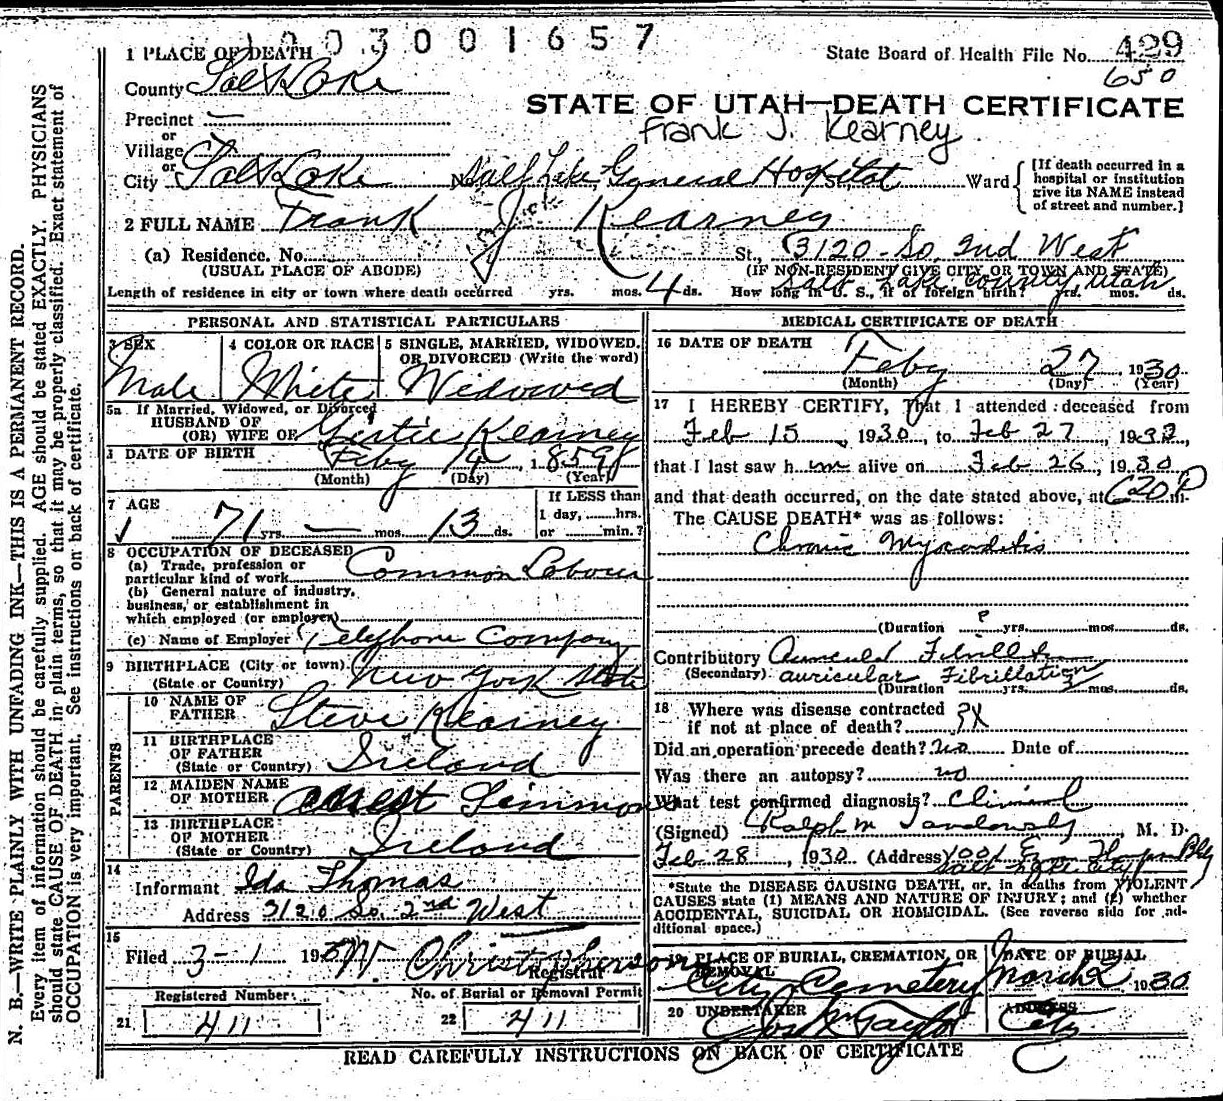 1003001657
1 PLACE OF DEATH State Board of Health File No. 429
650
County Salt Lake
STATE OF UTAH—DEATH CERTIFICATE
Frank J. Kearney
Precinct —
or
Village
or
City Salt Lake No. Salt Lake General Hospital St., Ward [If death occurred in a hospital or institution give its NAME instead of street and number.]
2 FULL NAME Frank J Kearney
(a) Residence. No. St., 3120 So. 2nd West
(USUAL PLACE OF ABODE) (IF NON-RESIDENT GIVE CITY OR TOWN AND STATE)
Salt Lake County, Utah
Length of residence in city or town where death occurred yrs. mos. 4 ds. How long in U. S., if of foreign birth? yrs. mos. ds.
PERSONAL AND STATISTICAL PARTICULARS
3 SEX 4 COLOR OR RACE 5 SINGLE, MARRIED, WIDOWED, OR DIVORCED (Write the word)
Male White Widowed
5a If Married, Widowed, or Divorced
HUSBAND OF
(OR) WIFE OF Gertie Kearney
DATE OF BIRTH Feby 14, 1859
(Month) (Day) (Year)
7 AGE If LESS than
1 day, hrs.
71 yrs. — mos. 13 ds. or min.?
8 OCCUPATION OF DECEASED
(a) Trade, profession or
particular kind of work Common Labour
(b) General nature of industry,
business, or establishment in
which employed (or employer)
(c) Name of Employer Telephone Company
9 BIRTHPLACE (City or town)
(State or Country) New York State
PARENTS
10 NAME OF
FATHER Steve Kearney
11 BIRTHPLACE
OF FATHER
(State or Country) Ireland
12 MAIDEN NAME
OF MOTHER Simmons
13 BIRTHPLACE
OF MOTHER
(State or Country) Ireland
14
Informant Ida Thomas
Address 3120 So. 2nd West
15
Filed 3-1 1930 W. Christopherson
Registrar
Registered Number No. of Burial or Removal Permit
21 411 22 411
MEDICAL CERTIFICATE OF DEATH
16 DATE OF DEATH
Feby 27 1930
(Month) (Day) (Year)
17 I HEREBY CERTIFY, That I attended deceased from
Feb 15, 1930, to Feb 27, 1930,
that I last saw him alive on Feb 26, 1930
and that death occurred, on the date stated above, at 620 P m.
The CAUSE DEATH* was as follows:
Chronic Myocarditis
(Duration ? yrs. mos. ds.
Contributory Auricular Fibrillation
(Secondary) auricular Fibrillation
(Duration yrs. mos. ds.
18 Where was disease contracted
if not at place of death?
Did an operation precede death? no Date of
Was there an autopsy? no
What test confirmed diagnosis? Clinical
(Signed) Ralph M Tandowsky, M. D.
Feb 28, 1930 (Address) 1001
Salt Lake City
*State the DISEASE CAUSING DEATH, or, in deaths from VIOLENT
CAUSES state (1) MEANS AND NATURE OF INJURY; and (2) whether
ACCIDENTAL, SUICIDAL OR HOMICIDAL. (See reverse side for ad-
ditional space.)
19 PLACE OF BURIAL, CREMATION, OR REMOVAL DATE OF BURIAL
City Cemetery March 2 1930
20 UNDERTAKER ADDRESS
Jos Wm Taylor City
READ CAREFULLY INSTRUCTIONS ON BACK OF CERTIFICATE
N. B.—WRITE PLAINLY WITH UNFADING INK—THIS IS A PERMANENT RECORD.
Every item of information should be carefully supplied. AGE should be stated EXACTLY. PHYSICIANS
should state CAUSE OF DEATH in plain terms, so that it may be properly classified. Exact statement of
OCCUPATION is very important. See instructions on back of certificate.